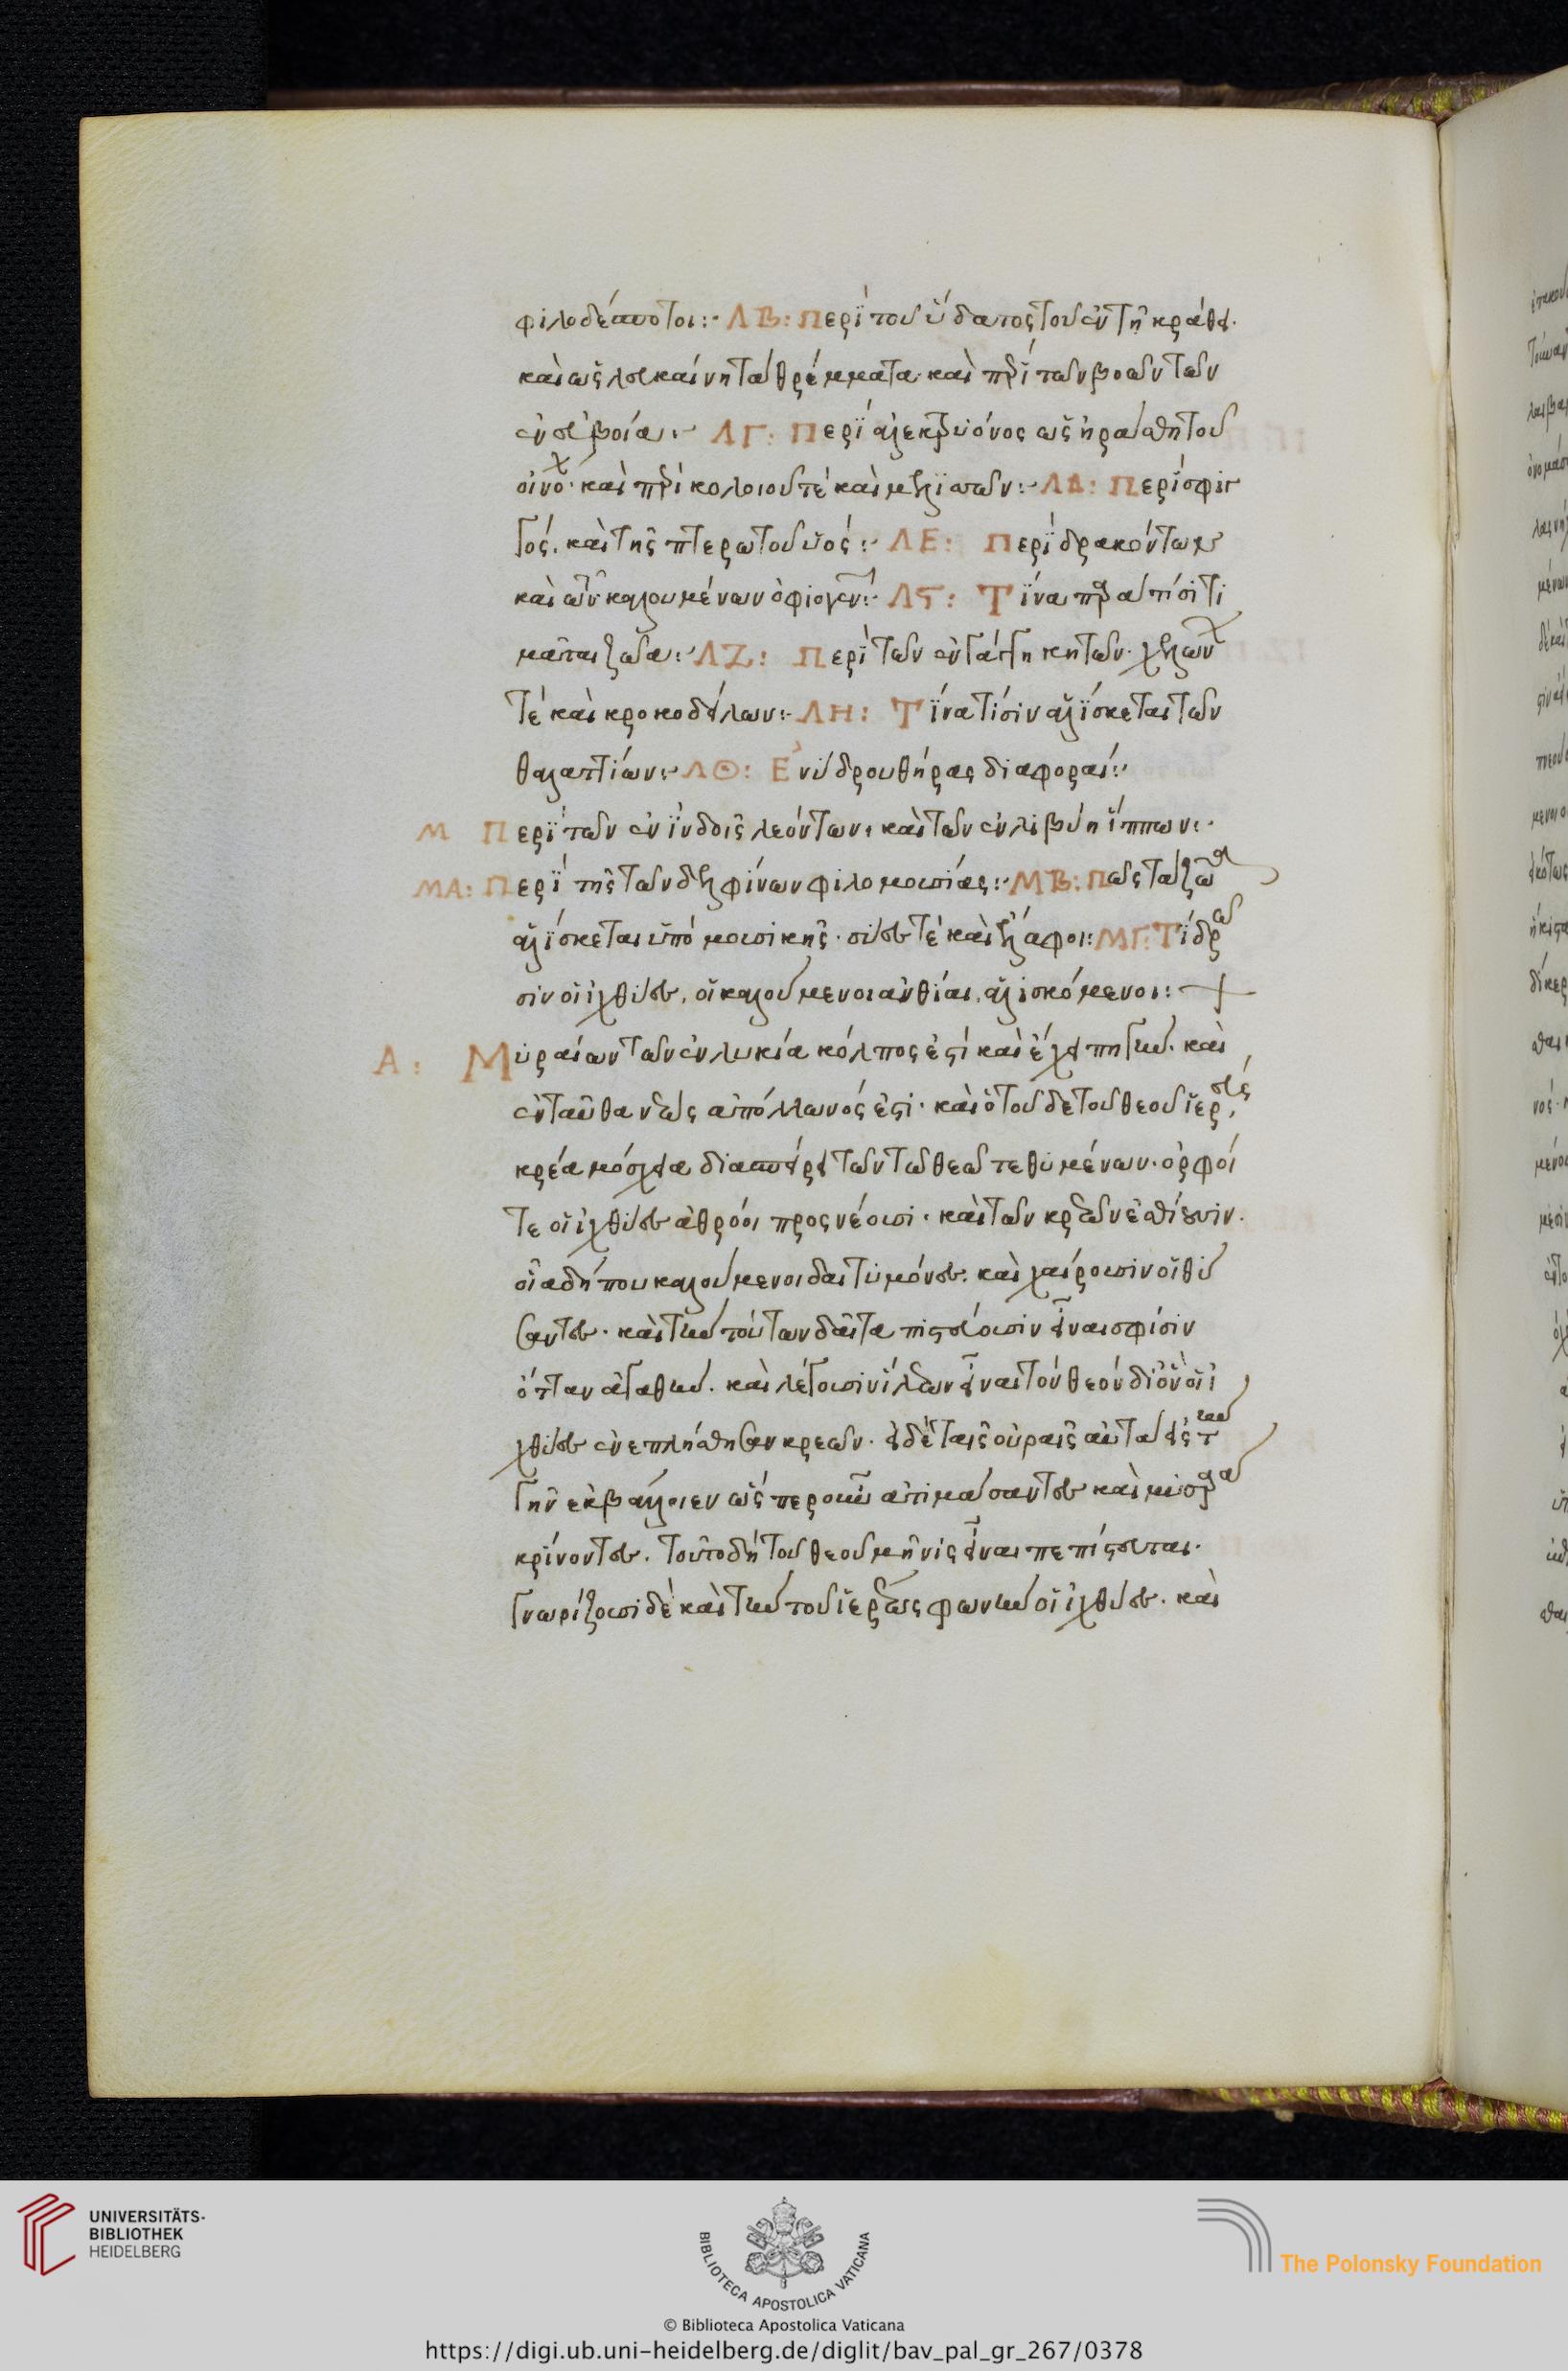 φιλοδέσποτοι:· ΛΒ: Περὶ τοῦ ὕδατος τοῦ ἐν τῆ κράθει·
καὶ ὡς λευκαίνη τὰ θρέμματα· καὶ περὶ τῶν βοῶν τῶν
ἐν εὐβοία:· ΛΓ: Περὶ ἀλεκτρυόνος ὡς ἠράσθη τοῦ
οἰνοχ· καὶ περὶ κολοιοῦ τέ καὶ μελισσῶν:· ΛΔ: Περὶ σφιγ
γός. καὶ τῆς πτερωτοῦ ὑός:· ΛΕ: Περὶ δρακόντων
καὶ τῶν καλουμένων ὀφιογεν:· ΛϚ: Τίνα παρά τισι τι
μᾶται ζῶα:· ΛΖ: Περὶ τῶν ἐν γάγγη κητῶν· χελων
τέ καὶ κροκοδείλων:· ΛΗ: Τίνα τίσιν ἁλίσκεται τῶν
θαλαττίων:· ΛΘ: Ἐνύδρου θήρας διαφοραί:·
Μ Περὶ τῶν ἐν ἰνδοῖς λεόντων· καὶ τῶν ἐν λιβύη ἵππων:·
ΜΑ: Περὶ τῆς τῶν δελφίνων φιλομουσίας:· ΜΒ: Πῶς τὰ ζῶα
ἁλίσκεται ὑπὸ μουσικῆς· σύες τέ καὶ ἔλαφοι: ΜΓ: Τί δρῶ
σιν οἱ ἰχθύες, οἱ καλούμενοι ἀνθίαι, ἁλισκόμενοι:
Α: Μυραίων τῶν ἐν λυκία κόλπος ἐστὶ καὶ ἔχει πηγὴν. καὶ
ἐνταῦθα νεὼς ἀπόλλωνός ἐστι· καὶ ὁ τοῦδε τοῦ θεοῦ ἱερεὺς,
κρέα μόσχεια διασπείρει τῶν τῶ θεῶ τεθυμένων· ὀρφοί
τε οἱ ἰχθύες ἀθρόοι προσνέουσι· καὶ τῶν κρεῶν ἐσθίουσιν.
οἷα δήπου καλούμενοι δαιτυμόνες· καὶ χαίρουσιν οἱ θύ
σαντες· καὶ τὴν τούτων δαῖτα πιστεύουσιν εἶναι σφίσιν
ὄτταν ἀγαθὴν. καὶ λέγουσιν ἵλεων εἶναι τὸν θεὸν διότι οἱ ἰ
χθύες ἐνεπλήσθησαν κρεῶν· εἰ δὲ ταῖς οὐραῖς αὐτὰ εἰς τὴν
γῆν ἐκβάλλοιεν ὥσπερ οὖν ἀτιμάσαντες καὶ μυσαρὰ
κρίνοντες. τοῦτο δὴ τοῦ θεοῦ μῆνις εἶναι πεπίστευται·
γνωρίζουσι δὲ καὶ τὴν τοῦ ἱερέως φωνὴν οἱ ἰχθύες. καὶ
UNIVERSITÄTS-
BIBLIOTHEK
HEIDELBERG
BIBLIOTECA APOSTOLICA VATICANA
The Polonsky Foundation
© Biblioteca Apostolica Vaticana
https://digi.ub.uni-heidelberg.de/diglit/bav_pal_gr_267/0378